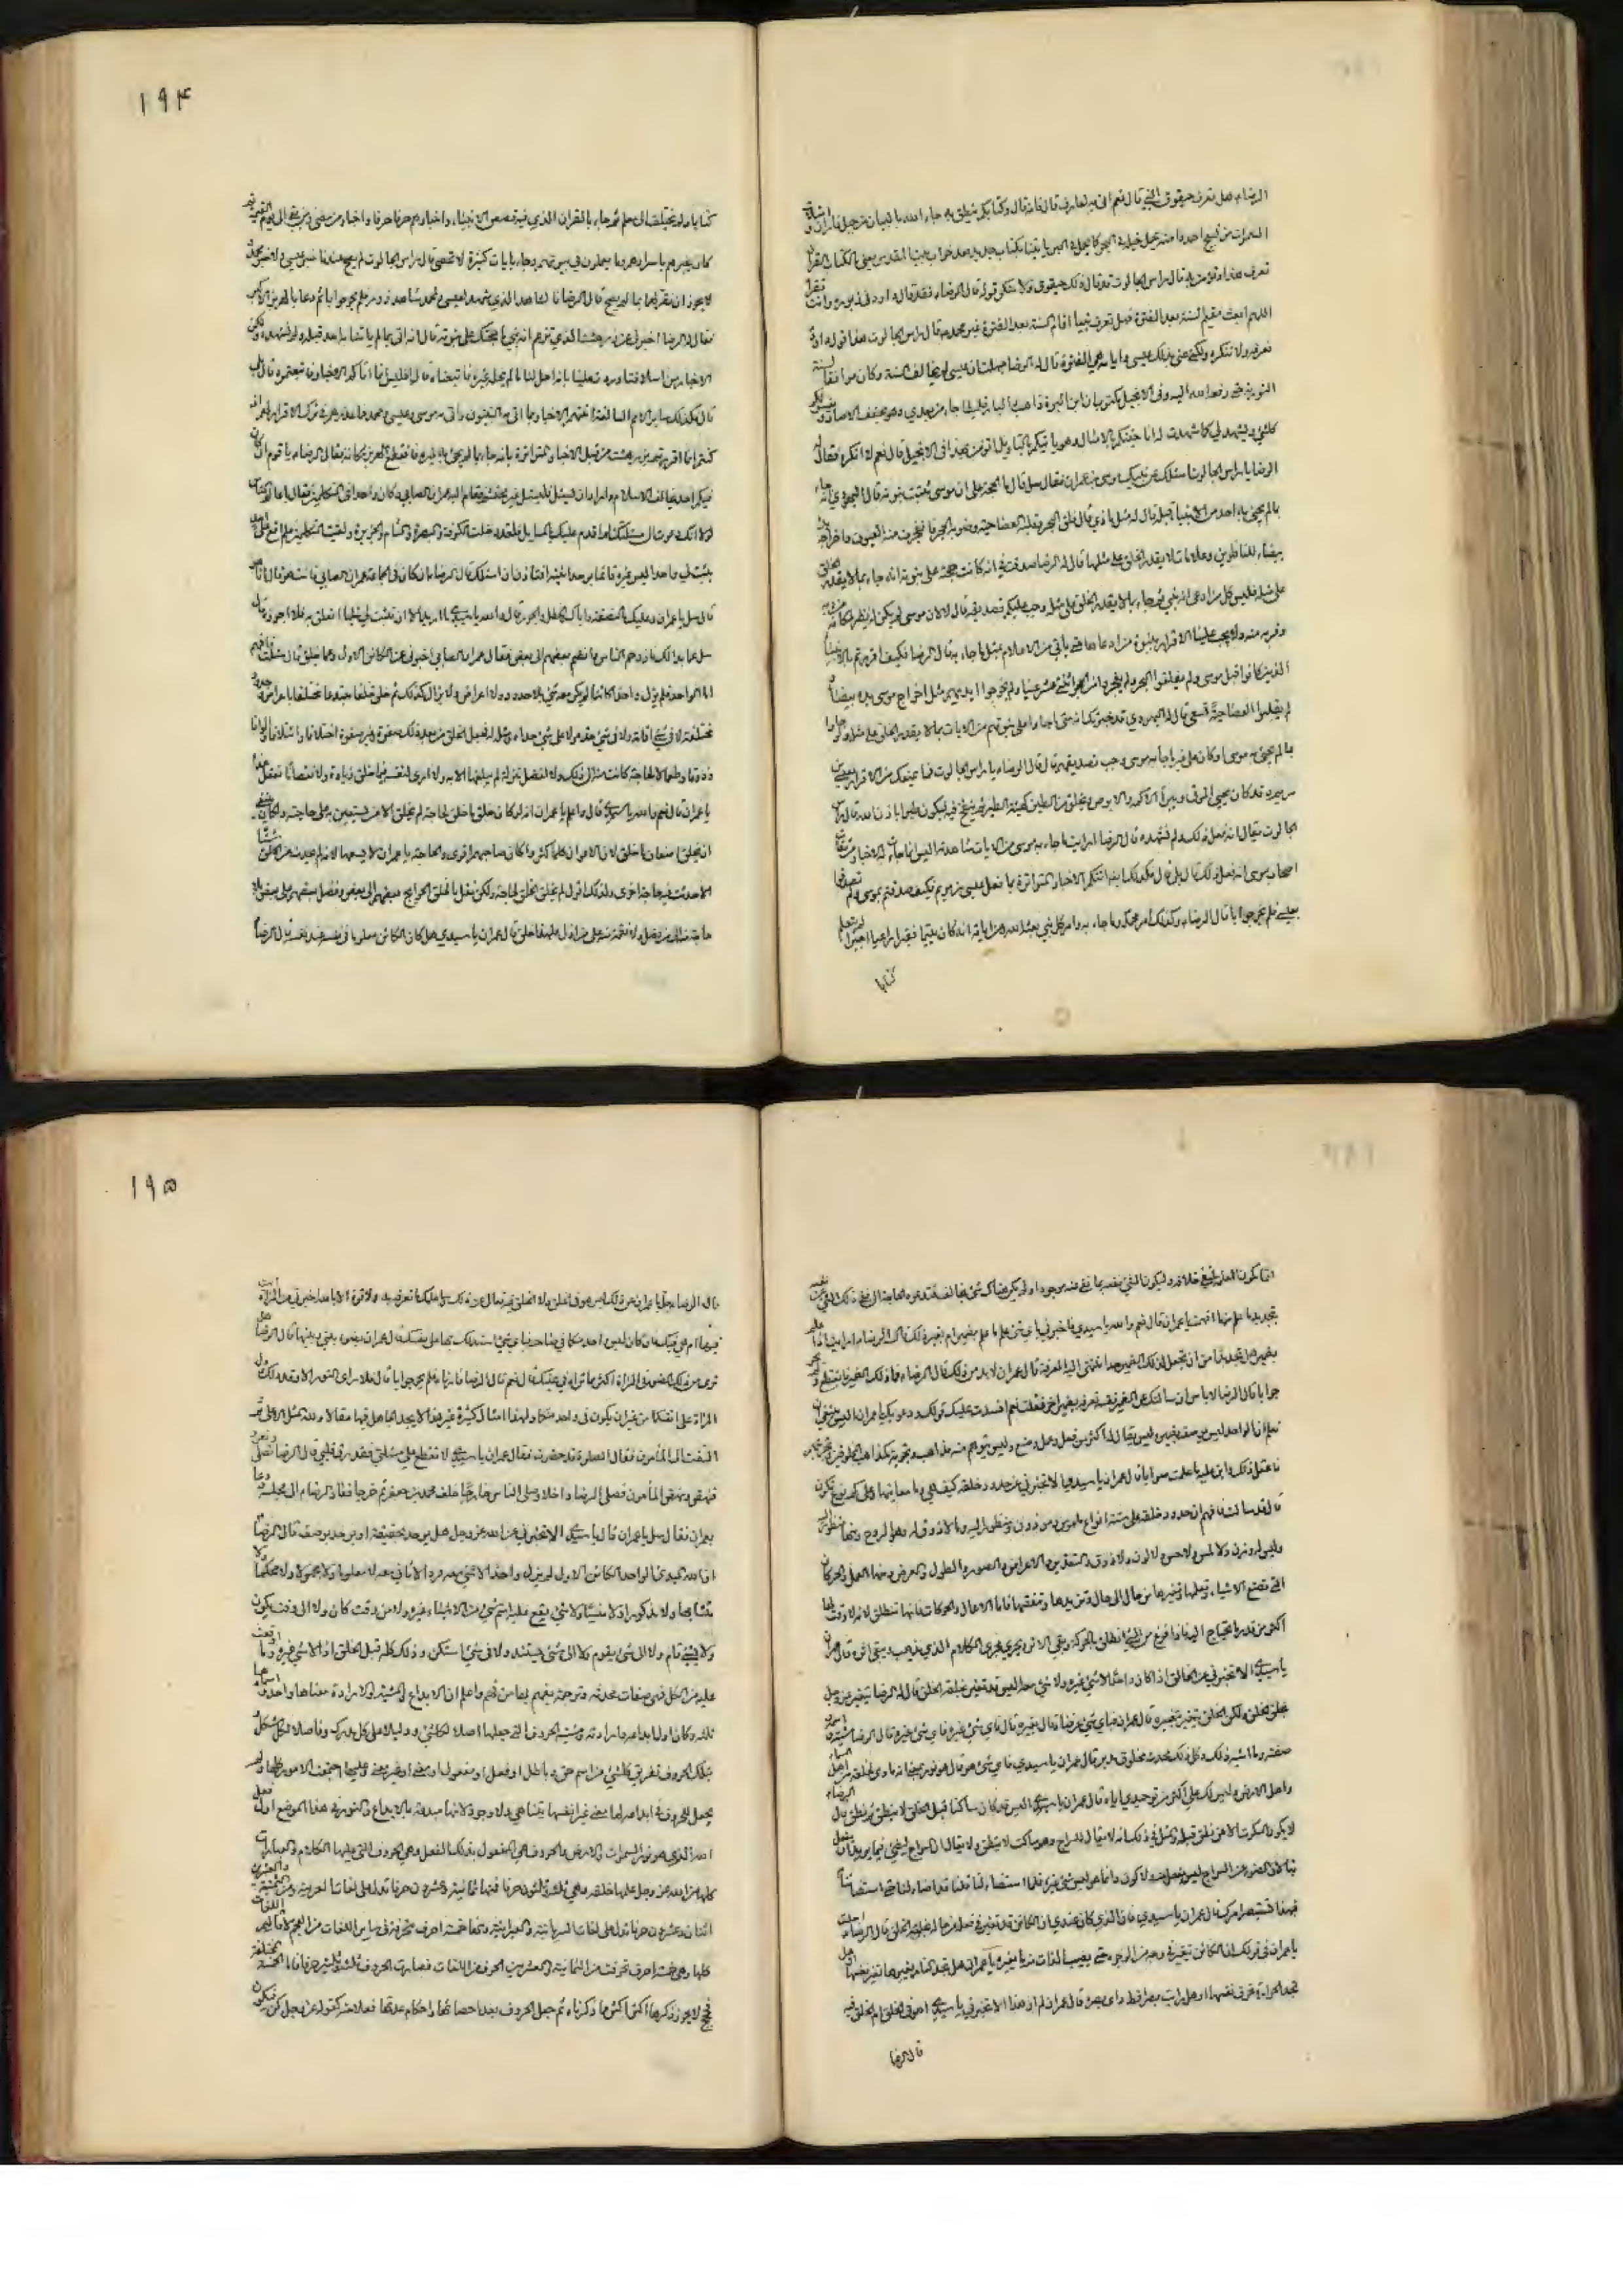 الرضا هل تعرف حيقوق النبي قال نعم اني به لعارف قال فانه قال وكتابكم ينطق به جاء الله بالبيان من جبل فاران و
السموات من تسبيح احمد وامته يحمل خيله في البحر كما يحمل في البر ياتينا بكتاب جديد بعد خراب بيت المقدس يعني بالكتاب القران
تعرف هذا وتؤمن به قال راس الجالوت قد قال ذلك حيقوق ولا ننكر قوله قال الرضا فقد قال داود في زبوره وانت
اللهم ابعث مقيم السنة بعد الفترة فهل تعرف نبيا اقام السنة بعد الفترة غير محمد قال راس الجالوت هذا قول داود
نعرفه ولا ننكره ولكن عنى بذلك عيسى وايامه هي الفترة قال له الرضا جهلت ان عيسى لم يخالف السنة وكان موافقا
التورية حتى رفعه الله اليه وفي الانجيل مكتوب ان ابن البرة ذاهب والبارقليطا جاء من بعدي وهو يخفف الاصار
كل شيء ويشهد لي كما شهدت له انا جئتكم بالامثال وهو ياتيكم بالتاويل اتؤمن بهذا في الانجيل قال نعم لا انكره فقال
الرضا يا راس الجالوت اسئلك عن نبيك موسى بن عمران فقال سل قال ما الحجة على ان موسى ثبتت نبوته قال اليهودي انه
بما لم يجئ به احد من الانبياء قبله قال له مثل ماذي قال فلق البحر وقلبه العصا حية وضربه الحجر فانفجرت منه العيون واخراجه
بيضاء للناظرين وعلامات لا يقدر الخلق على مثلها قال له الرضا صدقت في انه كانت حجة على نبوته انه جاء بما لا يقدر
على مثله فليس كل من ادعى انه نبي ثم جاء بما لا يقدر الخلق على مثله وجب عليكم تصديقه قال لا لان موسى لم يكن له نظير لمكانه
وقربه منه ولا يجب علينا الاقرار بنبوة من ادعاها حتى ياتي من الاعلام بمثل ما جاء به قال الرضا فكيف اقررتم بالانبياء
الذين كانوا قبل موسى ولم يفلقوا البحر ولم يفجروا من الحجر اثنتي عشرة عينا ولم يخرجوا ايديهم مثل اخراج موسى يده بيضاء
لم يقلبوا العصا حية تسعى قال له اليهودي قد خبرتك انه متى جاوا على نبوتهم من الايات بما لا يقدر الخلق على مثله
بما لم يجئ به موسى او كان على غير ما جاء به موسى وجب تصديقهم قال قال الرضا يا راس الجالوت فما يمنعك من الاقرار بعيسى بن
مريم وقد كان يحيي الموتى ويبرئ الاكمه والابرص ويخلق من الطين كهيئة الطير ثم ينفخ فيه فيكون طيرا باذن الله قال
الجالوت يقال انه فعل ذلك ولم نشهده قال الرضا ارايت ما جاء به موسى من الايات شاهدته اليس انما جاءت الاخبار
اصحاب موسى انه فعل ذلك قال بلى قال فكذلك ايضا اتتكم الاخبار المتواترة بما فعل عيسى بن مريم فكيف صدقتم بموسى ولم تصدقوا
بعيسى فلم يحر جوابا قال الرضا وكذلك امر محمد وما جاء به وامر كل نبي بعثه الله ومن اياته انه كان يتيما فقيرا راعيا اجيرا لم يتعلم
كتابا
۱۹۴
كتابا ولم يختلف الى معلم ثم جاء بالقران الذي فيه قصص الانبياء واخبارهم حرفا حرفا واخبار من مضى ومن بقي الى يوم القيمة
كان يخبرهم باسرارهم وما يعملون في بيوتهم وجاء بايات كثيرة لا تحصى قال راس الجالوت لم يصح عندنا خبر عيسى ولا خبر محمد
لا يجوز ان نقر لهما بما لم يصح قال الرضا فالشاهد الذي شهد لعيسى ولمحمد شاهد زور فلم يحر جوابا ثم دعا بالهربذ الاكبر
فقال له الرضا اخبرني عن زردهشت الذي تزعم انه نبي ما حجتك على نبوته قال انه اتى بما لم ياتنا به احد قبله ولم نشهده ولكن
الاخبار من اسلافنا وردت علينا بانه احل لنا ما لم يحله غيره فاتبعناه قال افليس انما اتتكم الاخبار فاتبعتموه قال بلى
قال فكذلك ساير الامم السالفة اتتهم الاخبار بما اتى به النبيون واتى به موسى وعيسى ومحمد فما عذركم في ترك الاقرار لهم اذ
كنتم انما اقررتم بزردهشت من قبل الاخبار المتواترة بانه جاء بما لم يجئ به غيره فانقطع الهربذ مكانه فقال الرضا يا قوم ان كان
فيكم احد يخالف الاسلام واراد ان يسئل فليسئل غير محتشم فقام اليه عمران الصابي وكان واحدا من المتكلمين فقال يا عالم الناس
لولا انك دعوت الى مسئلتك لم اقدم عليك بالمسايل فلقد دخلت الكوفة والبصرة والشام والجزيرة ولقيت المتكلمين فلم اقع على احد
يثبت لي واحدا ليس غيره قائما بوحدانيته افتاذن ان اسئلك قال الرضا ان كان في الجماعة عمران الصابي فانت هو قال انا هو
قال سل يا عمران وعليك بالنصفة واياك والخطل والجور قال والله يا سيدي ما اريد الا ان تثبت لي شيئا اتعلق به فلا اجوزه قال
سل عما بدا لك فازدحم الناس وانضم بعضهم الى بعض فقال عمران الصابي اخبرني عن الكائن الاول وعما خلق قال سئلت فافهم
اما الواحد فلم يزل واحدا كائنا لا شيء معه بلا حدود ولا اعراض ولا يزال كذلك ثم خلق خلقا مبتدعا مختلفا باعراض وحدود
مختلفة لا في شيء اقامه ولا في شيء حده ولا على شيء حذاه ومثله له فجعل الخلق من بعد ذلك صفوة وغير صفوة واختلافا وائتلافا والوانا
وذوقا وطعما لا لحاجة كانت منه الى ذلك ولا لفضل منزلة لم يبلغها الا به ولا راى لنفسه فيما خلق زيادة ولا نقصانا تعقل هذا
يا عمران قال نعم والله يا سيدي قال واعلم يا عمران انه لو كان خلق ما خلق لحاجة لم يخلق الا من يستعين به على حاجته ولكان ينبغي
ان يخلق اضعاف ما خلق لان الاعوان كلما كثروا كان صاحبهم اقوى والحاجة يا عمران لا يسعها لانه لم يحدث من الخلق شيئا
الا حدثت فيه حاجة اخرى ولذلك اقول لم يخلق الخلق لحاجة ولكن نقل بالخلق الحوائج بعضهم الى بعض وفضل بعضهم على بعض بلا
حاجة منه الى من فضل ولا نقمة منه على من اذل فلهذا خلق قال عمران يا سيدي هل كان الكائن معلوما في نفسه عند نفسه قال الرضا
انما يكون المعلمة بالشيء لنفي خلافه وليكون الشيء نفسه بما نفى عنه موجودا ولم يكن هناك شيء يخالفه فتدعوه الحاجة الى نفي ذلك الشيء عن نفسه
بتحديد ما علم منها افهمت يا عمران قال نعم والله يا سيدي فاخبرني باي شيء علم ما علم بضمير ام بغير ذلك قال الرضا ارايت اذا علم
بضمير هل تجد بدا من ان تجعل لذلك الضمير حدا تنتهي اليه المعرفة قال عمران لا بد من ذلك قال الرضا فما ذلك الضمير فانقطع ولم يحر
جوابا قال الرضا لا باس ان سالتك عن الضمير نفسه تعرفه بضمير اخر فقلت نعم افسدت عليك قولك ودعويك يا عمران اليس ينبغي ان
تعلم ان الواحد ليس يوصف بضمير وليس يقال له اكثر من فعل وعمل وصنع وليس يتوهم منه مذاهب وتجزية كمذاهب المخلوقين وتجزيتهم
فاعقل ذلك وابن عليه ما علمت صوابا قال عمران يا سيدي الا تخبرني عن حدود خلقه كيف هي وما معانيها وعلى كم نوع تكون
قال قد سالت فافهم ان حدود خلقه على ستة انواع ملموس وموزون ومنظور اليه وما لا ذوق له وهو الروح ومنها منظور اليه
وليس له وزن ولا لمس ولا حس ولا لون ولا ذوق والتقدير والاعراض والصور والطول والعرض ومنها العمل والحركات
التي تصنع الاشياء وتعملها وتغيرها من حال الى حال وتزيدها وتنقصها فاما الاعمال والحركات فانها تنطلق لانه لا وقت لها
اكثر من قدر ما يحتاج اليه فاذا فرغ من الشيء انطلق بالحركة وبقي الاثر ويجري مجرى الكلام الذي يذهب ويبقى اثره قال عمران
يا سيدي الا تخبرني عن الخالق اذا كان واحدا لا شيء غيره ولا شيء معه اليس قد تغير بخلقه الخلق قال له الرضا لم يتغير عز وجل
بخلق الخلق ولكن الخلق يتغير بتغييره قال عمران فباي شيء عرفناه قال بغيره قال فاي شيء غيره قال الرضا مشيته واسمه
صفته وما اشبه ذلك وكل ذلك محدث مخلوق مدبر قال عمران يا سيدي فاي شيء هو قال هو نور بمعنى انه هادي لخلقه من اهل السماء
واهل الارض وليس لك علي اكثر من توحيدي اياه قال عمران يا سيدي اليس قد كان ساكتا قبل الخلق لا ينطق ثم نطق قال الرضا
لا يكون السكوت الا عن نطق قبله والمثل في ذلك انه لا يقال للسراج هو ساكت لا ينطق ولا يقال ان السراج ليضيئ فيما يريد ان يفعل
بنا لان الضوء من السراج ليس بفعل منه ولا كون وانما هو ليس شيء غيره فلما استضاء لنا قلنا قد اضاء لنا حتى استضانا
فبهذا تستبصر امرك قال عمران يا سيدي فان الذي كان عندي ان الكائن قد تغير في فعله عن حاله بخلقه الخلق قال الرضا احلت
يا عمران في قولك ان الكائن يتغير في وجه من الوجوه حتى يصيب الذات منه ما يغيره يا عمران هل تجد النار يغيرها تغير نفسها او هل
تجد الحرارة تحرق نفسها او هل رايت بصيرا قط راى بصره قال عمران لم ار هذا الا تخبرني يا سيدي اهو في الخلق ام الخلق فيه
قال الرضا
۱۹۵
قال الرضا جل يا عمران عن ذلك ليس هو في الخلق ولا الخلق فيه تعالى عن ذلك وساعلمك ما تعرفه به ولا قوة الا بالله اخبرني عن المراة انت
فيها ام هي فيك فان كان ليس واحد منكما في صاحبه فباي شيء استدللت بها على نفسك قال عمران بضوء بيني وبينها قال الرضا هل
ترى من ذلك الضوء في المراة اكثر مما تراه في عينك قال نعم قال الرضا فارناه فلم يحر جوابا قال فلا ارى النور الا وقد دلك ودل
المراة على انفسكما من غير ان يكون في واحد منكما ولهذا امثال كثيرة غير هذا لا يجد الجاهل فيها مقالا ولله المثل الاعلى ثم
التفت الى المأمون فقال الصلوة قد حضرت فقال عمران يا سيدي لا تقطع علي مسئلتي فقد رق قلبي قال الرضا نصلي ونعود
فنهض ونهض المأمون فصلى الرضا داخلا وصلى الناس خارجا خلف محمد بن جعفر ثم خرجا فعاد الرضا الى مجلسه ودعا
بعمران فقال سل يا عمران قال يا سيدي الا تخبرني عن الله عز وجل هل يوحد بحقيقة او يوحد بوصف قال الرضا
ان الله المبدئ الواحد الكائن الاول لم يزل واحدا لا شيء معه فردا لا ثاني معه لا معلوما ولا مجهولا ولا محكما ولا
متشابها ولا مذكورا ولا منسيا ولا شيء يقع عليه اسم شيء من الاشياء غيره ولا من وقت كان ولا الى وقت يكون
ولا بشيء قام ولا الى شيء يقوم ولا الى شيء استند ولا في شيء استكن وذلك كله قبل الخلق اذ لا شيء غيره وما اوقعت
عليه من الكل فهي صفات محدثة وترجمة يفهم بها من فهم واعلم ان الابداع والمشية والارادة معناها واحد واسماءها
ثلثة وكان اول ابداعه وارادته ومشيته الحروف التي جعلها اصلا لكل شيء ودليلا على كل مدرك وفاصلا لكل مشكل
بتلك الحروف تفريق كل شيء من اسم حق وباطل او فعل او مفعول او معنى او غير معنى وعليها اجتمعت الامور كلها ولم
يجعل للحروف في ابداعه لها معنى غير انفسها يتناهى ولا وجود لانها مبدعة بالابداع والنور في هذا الموضع اول فعل
الله الذي هو نور السموات والارض والحروف هي المفعول بذلك الفعل وهي الحروف التي عليها الكلام والعبارات
كلها من الله عز وجل علمها خلقه وهي ثلثة وثلثون حرفا فمنها ثمانية وعشرون حرفا تدل على لغات العربية ومن الثمانية والعشرين
اثنان وعشرون حرفا تدل على لغات السريانية والعبرانية ومنها خمسة احرف متحرفة في ساير اللغات من العجم لاقاليم اللغات
كلها وهي خمسة احرف تحرفت من الثمانية والعشرين الحرف من اللغات فصارت الحروف ثلثة وثلثين حرفا فاما الخمسة المختلفة
فبحجج لا يجوز ذكرها اكثر مما ذكرناه ثم جعل الحروف بعد احصائها واحكام عدتها فعلا منه كقوله عز وجل كن فيكون